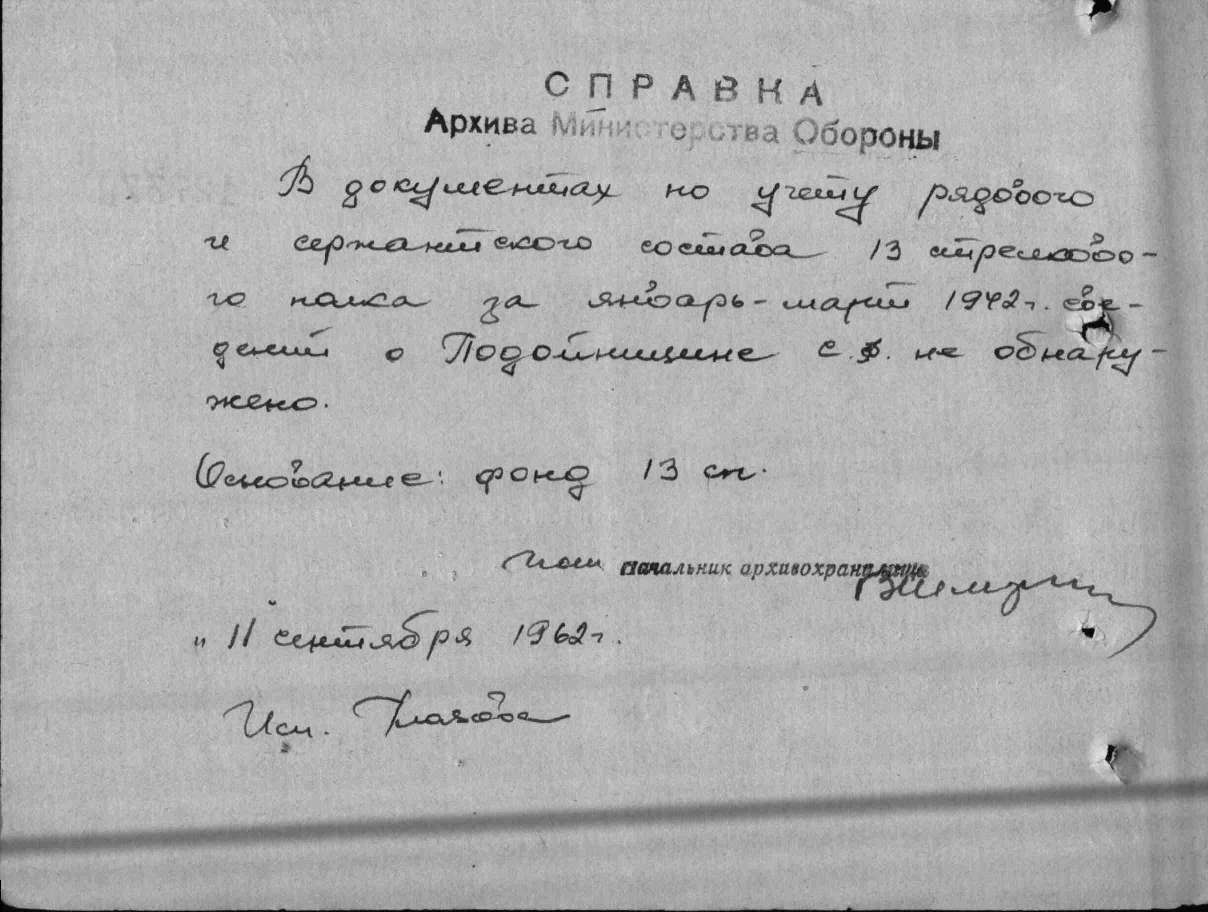 СПРАВКА
Архива Министерства Обороны
В документах по учету рядового
и сержантского состава 13 стрелково-
го полка за январь-март 1942г. све-
дений о Подойницине С.Ф. не обнару-
жено.
Основание: фонд 13 сп.
начальник архивохранилища
" 11 сентября 1962г.
Исп.